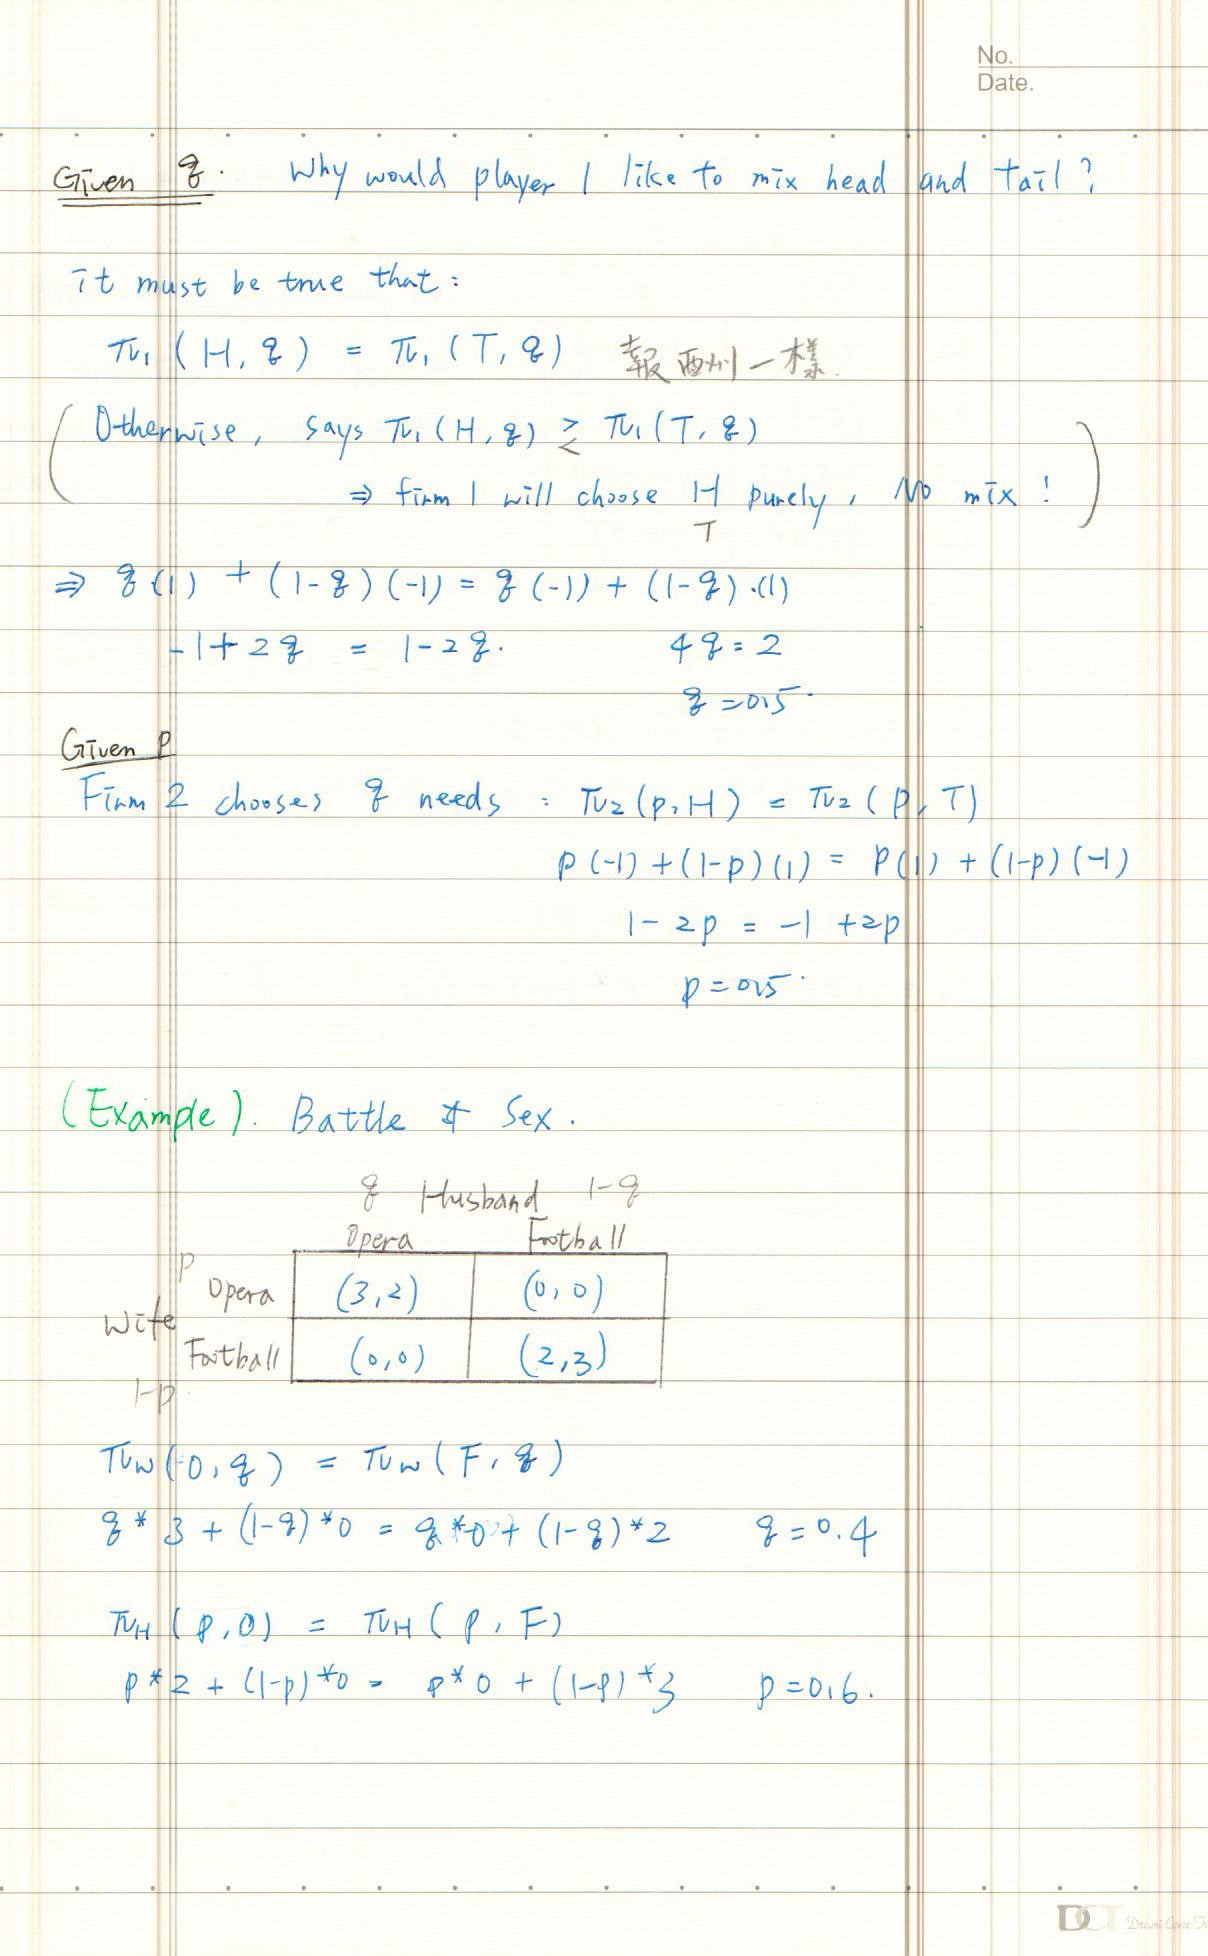 No.
Date.
Given q. Why would player 1 like to mix head and tail?
it must be true that:
π₁ (H, q) = π₁ (T, q) 報酬一樣.
(Otherwise, says π₁ (H, q) ≷ π₁ (T, q)
⇒ firm 1 will choose H purely, No mix!)
T
⇒ q(1) + (1-q)(-1) = q(-1) + (1-q)·(1)
-1+2q = 1-2q. 4q=2
q=0.5.
Given P
Firm 2 chooses q needs : π₂(p,H) = π₂(p,T)
p(-1)+(1-p)(1) = p(1)+(1-p)(-1)
1-2p = -1+2p
p=0.5.
(Example). Battle of Sex.
q Husband 1-q
Opera Football
P Opera (3,2) (0,0)
Wife
Football (0,0) (2,3)
1-p
πw(O,q) = πw(F,q)
q*3+(1-q)*0 = q*0+(1-q)*2 q=0.4
πH(p,O) = πH(p,F)
p*2+(1-p)*0 = p*0+(1-p)*3 p=0.6.
DCT Dreams Come Tr